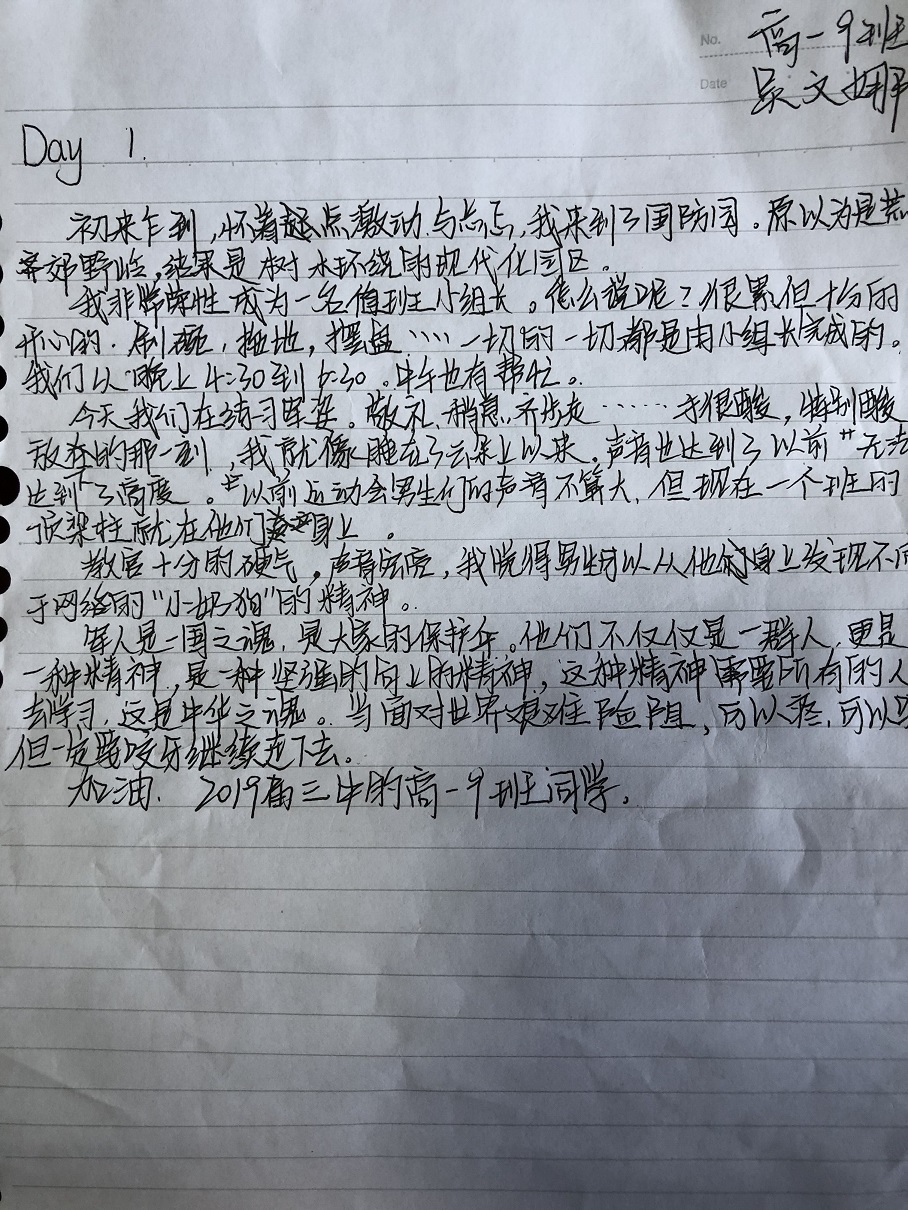 No. 高一9班
Date 吴文娜
Day 1.
初来乍到,怀着点激动与忐忑,我来到了国防园。原以为是荒
郊野岭,结果是树木环绕的现代化园区。
我非常荣幸成为一名值班小组长。怎么说呢?很累但十分的
开心的.刷碗,拖地,摆盘……一切的一切都是由小组长完成的。
我们从晚上4:30到6:30。中午也有帮忙。
今天我们在练习军姿。敬礼、稍息、齐步走……手很酸,特别酸
放松的那一刻,我就像睡在了云朵上以来,声音也达到了以前"无法
达到"了高度。以前运动会男生们的声音不算大,但现在一个班的
顶梁柱就在他们身上。
教官十分的硬气,声音宏亮,我觉得男生可以从他们身上发现不同
于网络的"小奶狗"的精神。
军人是一国之魂,是大家的保护伞。他们不仅仅是一群人,更是
一种精神,是一种坚强的向上的精神,这种精神需要所有的人
去学习,这是中华之魂。当面对世界艰难险阻,可以疼,可以哭
但一定要咬牙继续走下去。
加油.2019届三中的高一9班同学.